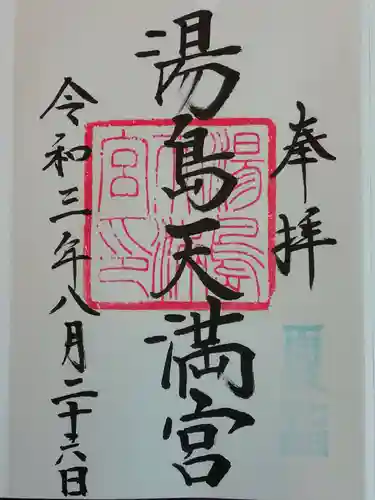 奉拝
夏詣
湯島天満宮
湯島天満宮印
令和三年八月二十六日